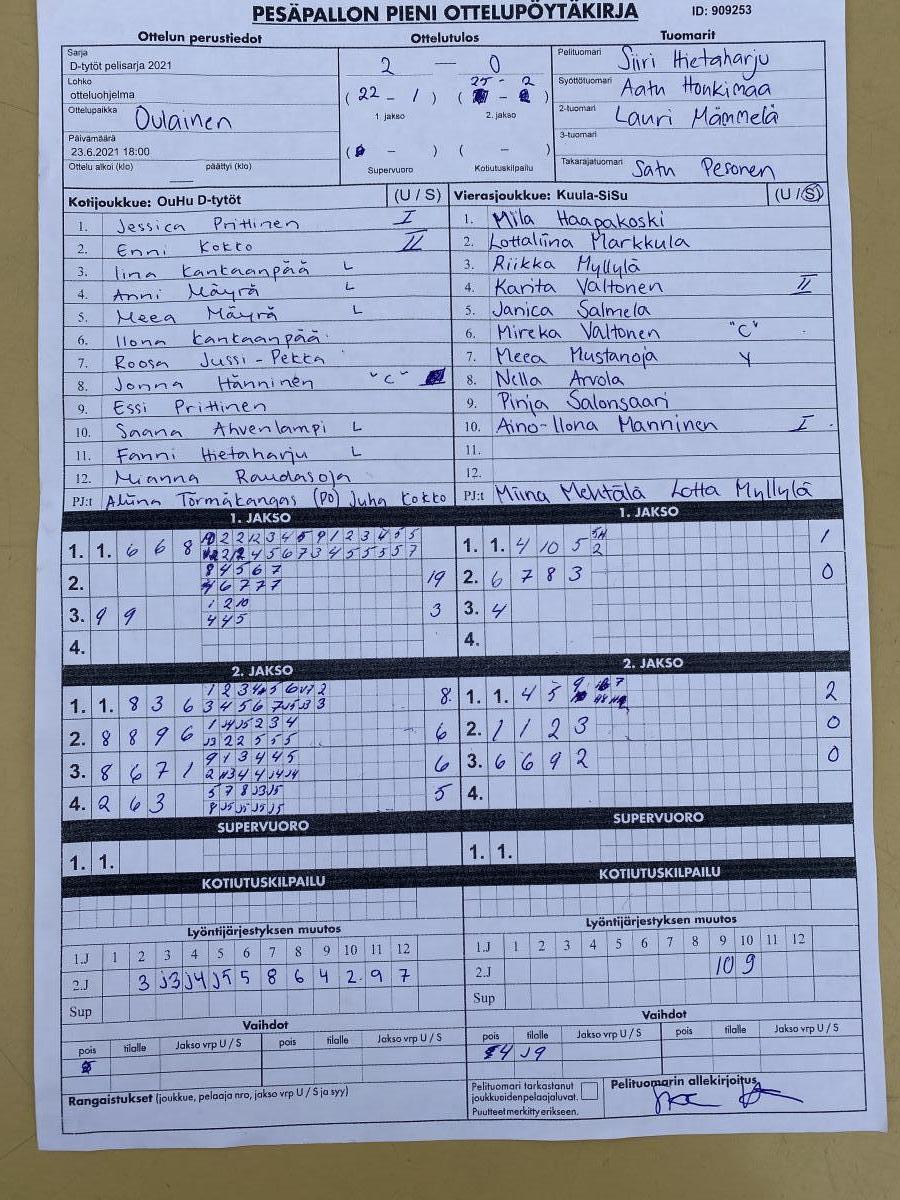 PESÄPALLON PIENI OTTELUPÖYTÄKIRJA ID: 909253
Ottelun perustiedot Ottelutulos Tuomarit
Sarja
D-tytöt pelisarja 2021
Lohko
otteluohjelma
Ottelupaikka Oulainen
Päivämäärä
23.6.2021 18:00
Ottelu alkoi (klo) päättyi (klo)
2 — 0
25 - 2
( 22 - 1 )
1. jakso 2. jakso
( - ) ( - )
Supervuoro Kotiutuskilpailu
Pelituomari Siiri Hietaharju
Syöttötuomari Aatu Honkimaa
2-tuomari Lauri Mämmelä
3-tuomari
Takarajatuomari Satu Pesonen
Kotijoukkue: OuHu D-tytöt (U / S)
1. Jessica Prittinen I
2. Enni Kokko II
3. Iina Kankaanpää L
4. Anni Mäyrä L
5. Meea Mäyrä L
6. Ilona Kankaanpää
7. Roosa Jussi-Pekka
8. Jonna Hänninen "C"
9. Essi Prittinen
10. Saana Ahvenlampi L
11. Fanni Hietaharju L
12. Mianna Raudasoja
PJ:t Aliina Törmäkangas (PO) Juha Kokko
Vierasjoukkue: Kuula-SiSu (U / S)
1. Mila Haapakoski
2. Lottaliina Markkula
3. Riikka Myllylä
4. Karita Valtonen II
5. Janica Salmela
6. Mireka Valtonen "C"
7. Meea Mustanoja Y
8. Nella Arvola
9. Pinja Salonsaari
10. Aino-Ilona Manninen I
11.
12.
PJ:t Miina Mehtälä Lotta Myllylä
1. JAKSO
1. 1. 6 6 8
2. 19
8 4 5 6 7
6 7 7 7
3. 9 9 3
1 2 10
4 4 5
4.
1. JAKSO
1. 1. 4 10 5 2 1
2. 6 7 8 3 0
3. 4
4.
2. JAKSO
1. 1. 8 3 6 8
2. 8 8 9 6 6
1 J4 J5 2 3 4
J3 2 2 5 5 5
3. 8 6 7 1 6
9 1 3 4 4 5
4. 2 6 3 5
5 7 8 J3 J5
8 J5 J5 J5 J5
2. JAKSO
1. 1. 4 5 2
2. 1 1 2 3 0
3. 6 6 9 2 0
4.
SUPERVUORO
1. 1.
SUPERVUORO
1. 1.
KOTIUTUSKILPAILU
KOTIUTUSKILPAILU
Lyöntijärjestyksen muutos
1.J 1 2 3 4 5 6 7 8 9 10 11 12
2.J 3 J3 J4 J5 5 8 6 4 2 9 7
Sup
Lyöntijärjestyksen muutos
1.J 1 2 3 4 5 6 7 8 9 10 11 12
2.J 10 9
Sup
Vaihdot
pois tilalle Jakso vrp U / S pois tilalle Jakso vrp U / S
Vaihdot
pois tilalle Jakso vrp U / S pois tilalle Jakso vrp U / S
4 J9
Rangaistukset (joukkue, pelaaja nro, jakso vrp U / S ja syy)
Pelituomari tarkastanut
joukkueidenpelaajaluvat.
Puutteet merkitty erikseen.
Pelituomarin allekirjoitus